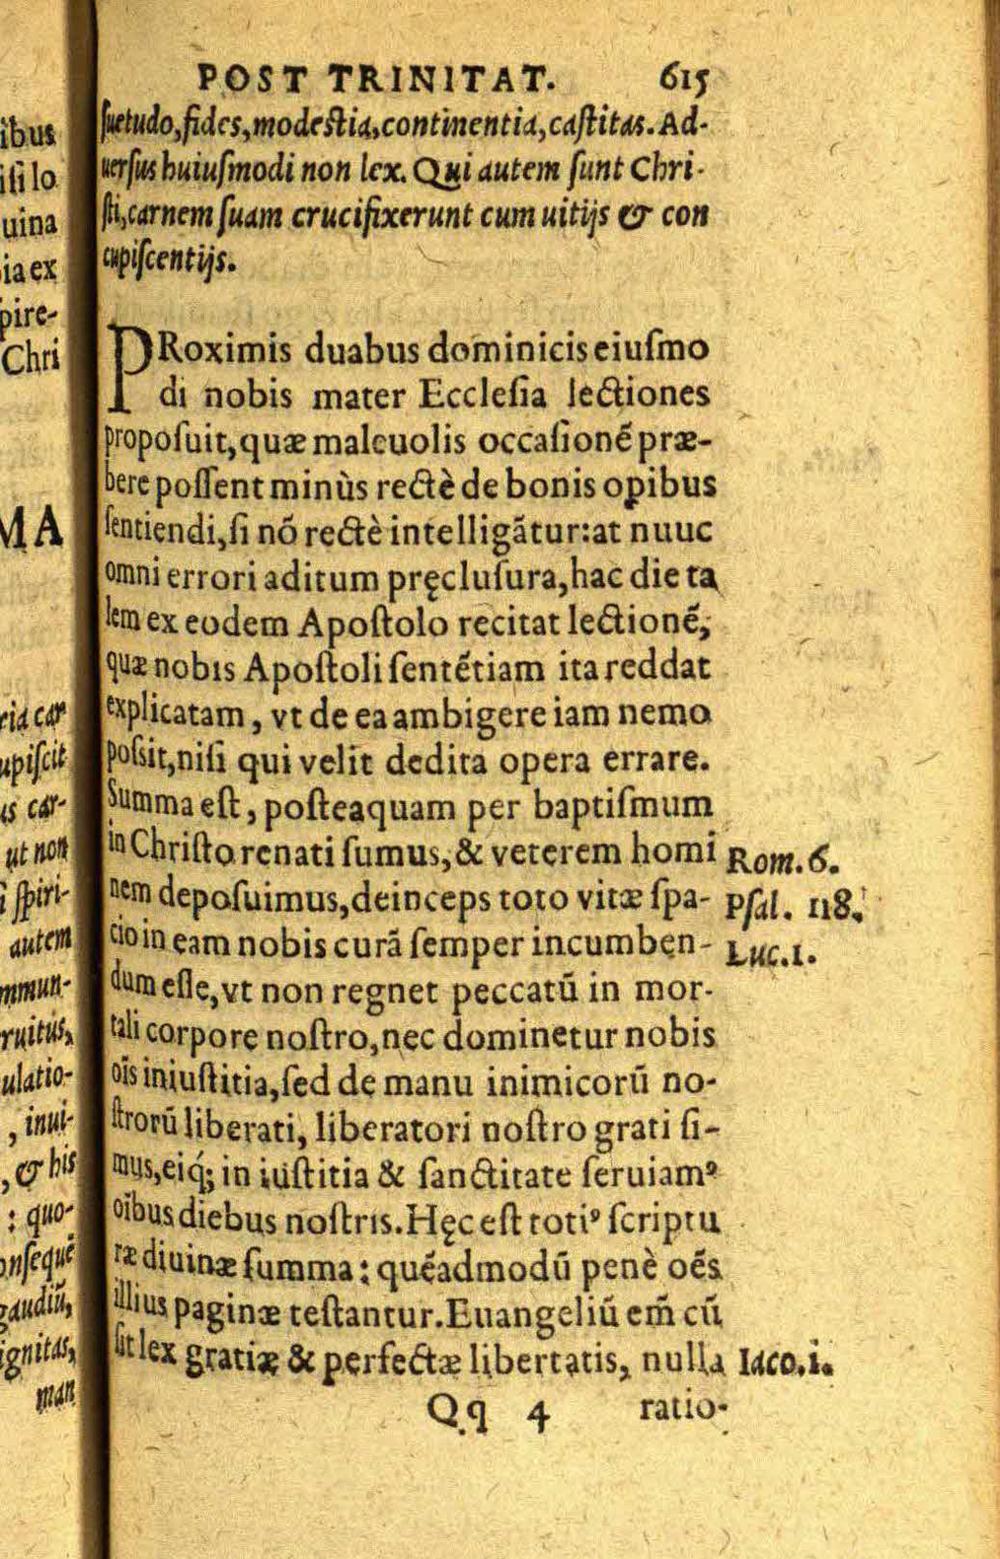 POST TRINITAT. 615
ſuetudo,fides,modeſtia,continentia,caſtitas.Ad-
uerſus huiuſmodi non lex. Qui autem ſunt Chri-
ſti,carnem ſuam crucifixerunt cum uitijs & con
cupiſcentijs.
PRoximis duabus dominicis eiuſmo
di nobis mater Eccleſia lectiones
propoſuit,quæ maleuolis occaſionẽ præ-
bere poſſent minùs rectè de bonis opibus
ſentiendi,ſi nõ rectè intelligãtur:at nuuc
omni errori aditum pręcluſura,hac die ta
lem ex eodem Apoſtolo recitat lectionẽ,
quæ nobis Apoſtoli ſentẽtiam ita reddat
explicatam, vt de ea ambigere iam nemo
poſsit,niſi qui velit dedita opera errare.
Summa eſt, poſteaquam per baptiſmum
in Chriſto renati ſumus,& veterem homi
Rom.6.
nem depoſuimus,deinceps toto vitæ ſpa-
Pſal. 118.
cio in eam nobis curã ſemper incumben-
Luc.1.
dum eſſe,vt non regnet peccatũ in mor-
tali corpore noſtro,nec dominetur nobis
oĩs iniuſtitia,ſed de manu inimicorũ no-
ſtrorũ liberati, liberatori noſtro grati ſi-
mus,eiq́; in iuſtitia & ſanctitate ſeruiamꝰ
oĩbus diebus noſtris.Hęc eſt totiꝰ ſcriptu
ræ diuinæ ſumma: quẽadmodũ penè oẽs
illius paginæ teſtantur.Euangeliũ em̃ cũ
ſit lex gratiæ & perfectæ libertatis, nulla
Iaco.i.
Qq 4 ratio-
ibus
iſi lo
uina
ia ex
pire-
Chri
MA
ria car
upiſcit
is car-
ut non
i ſpiri-
autem
mmun-
ruitus,
ulatio-
, inui-
,& his
: quo-
onſequẽ
gaudiũ,
ignitas,
man